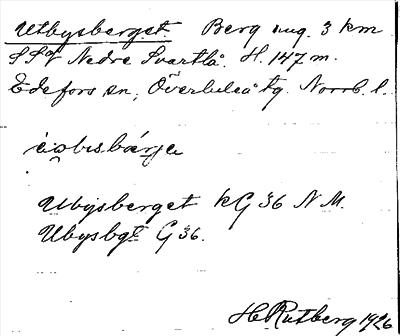 Utbysberget Berg ung. 3 km
SSV Nedre Svartlå. H. 147 m.
Edefors sn, Överluleå tg. Norrb. l.
Ubysberget kG 36 N.M.
Ubysbgt G 36.
H Rutberg 1926